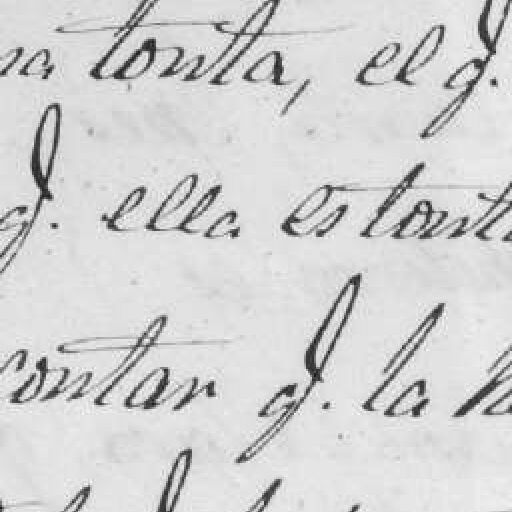 na tonta, el q.
q. ella es tonta
contar q. la ha